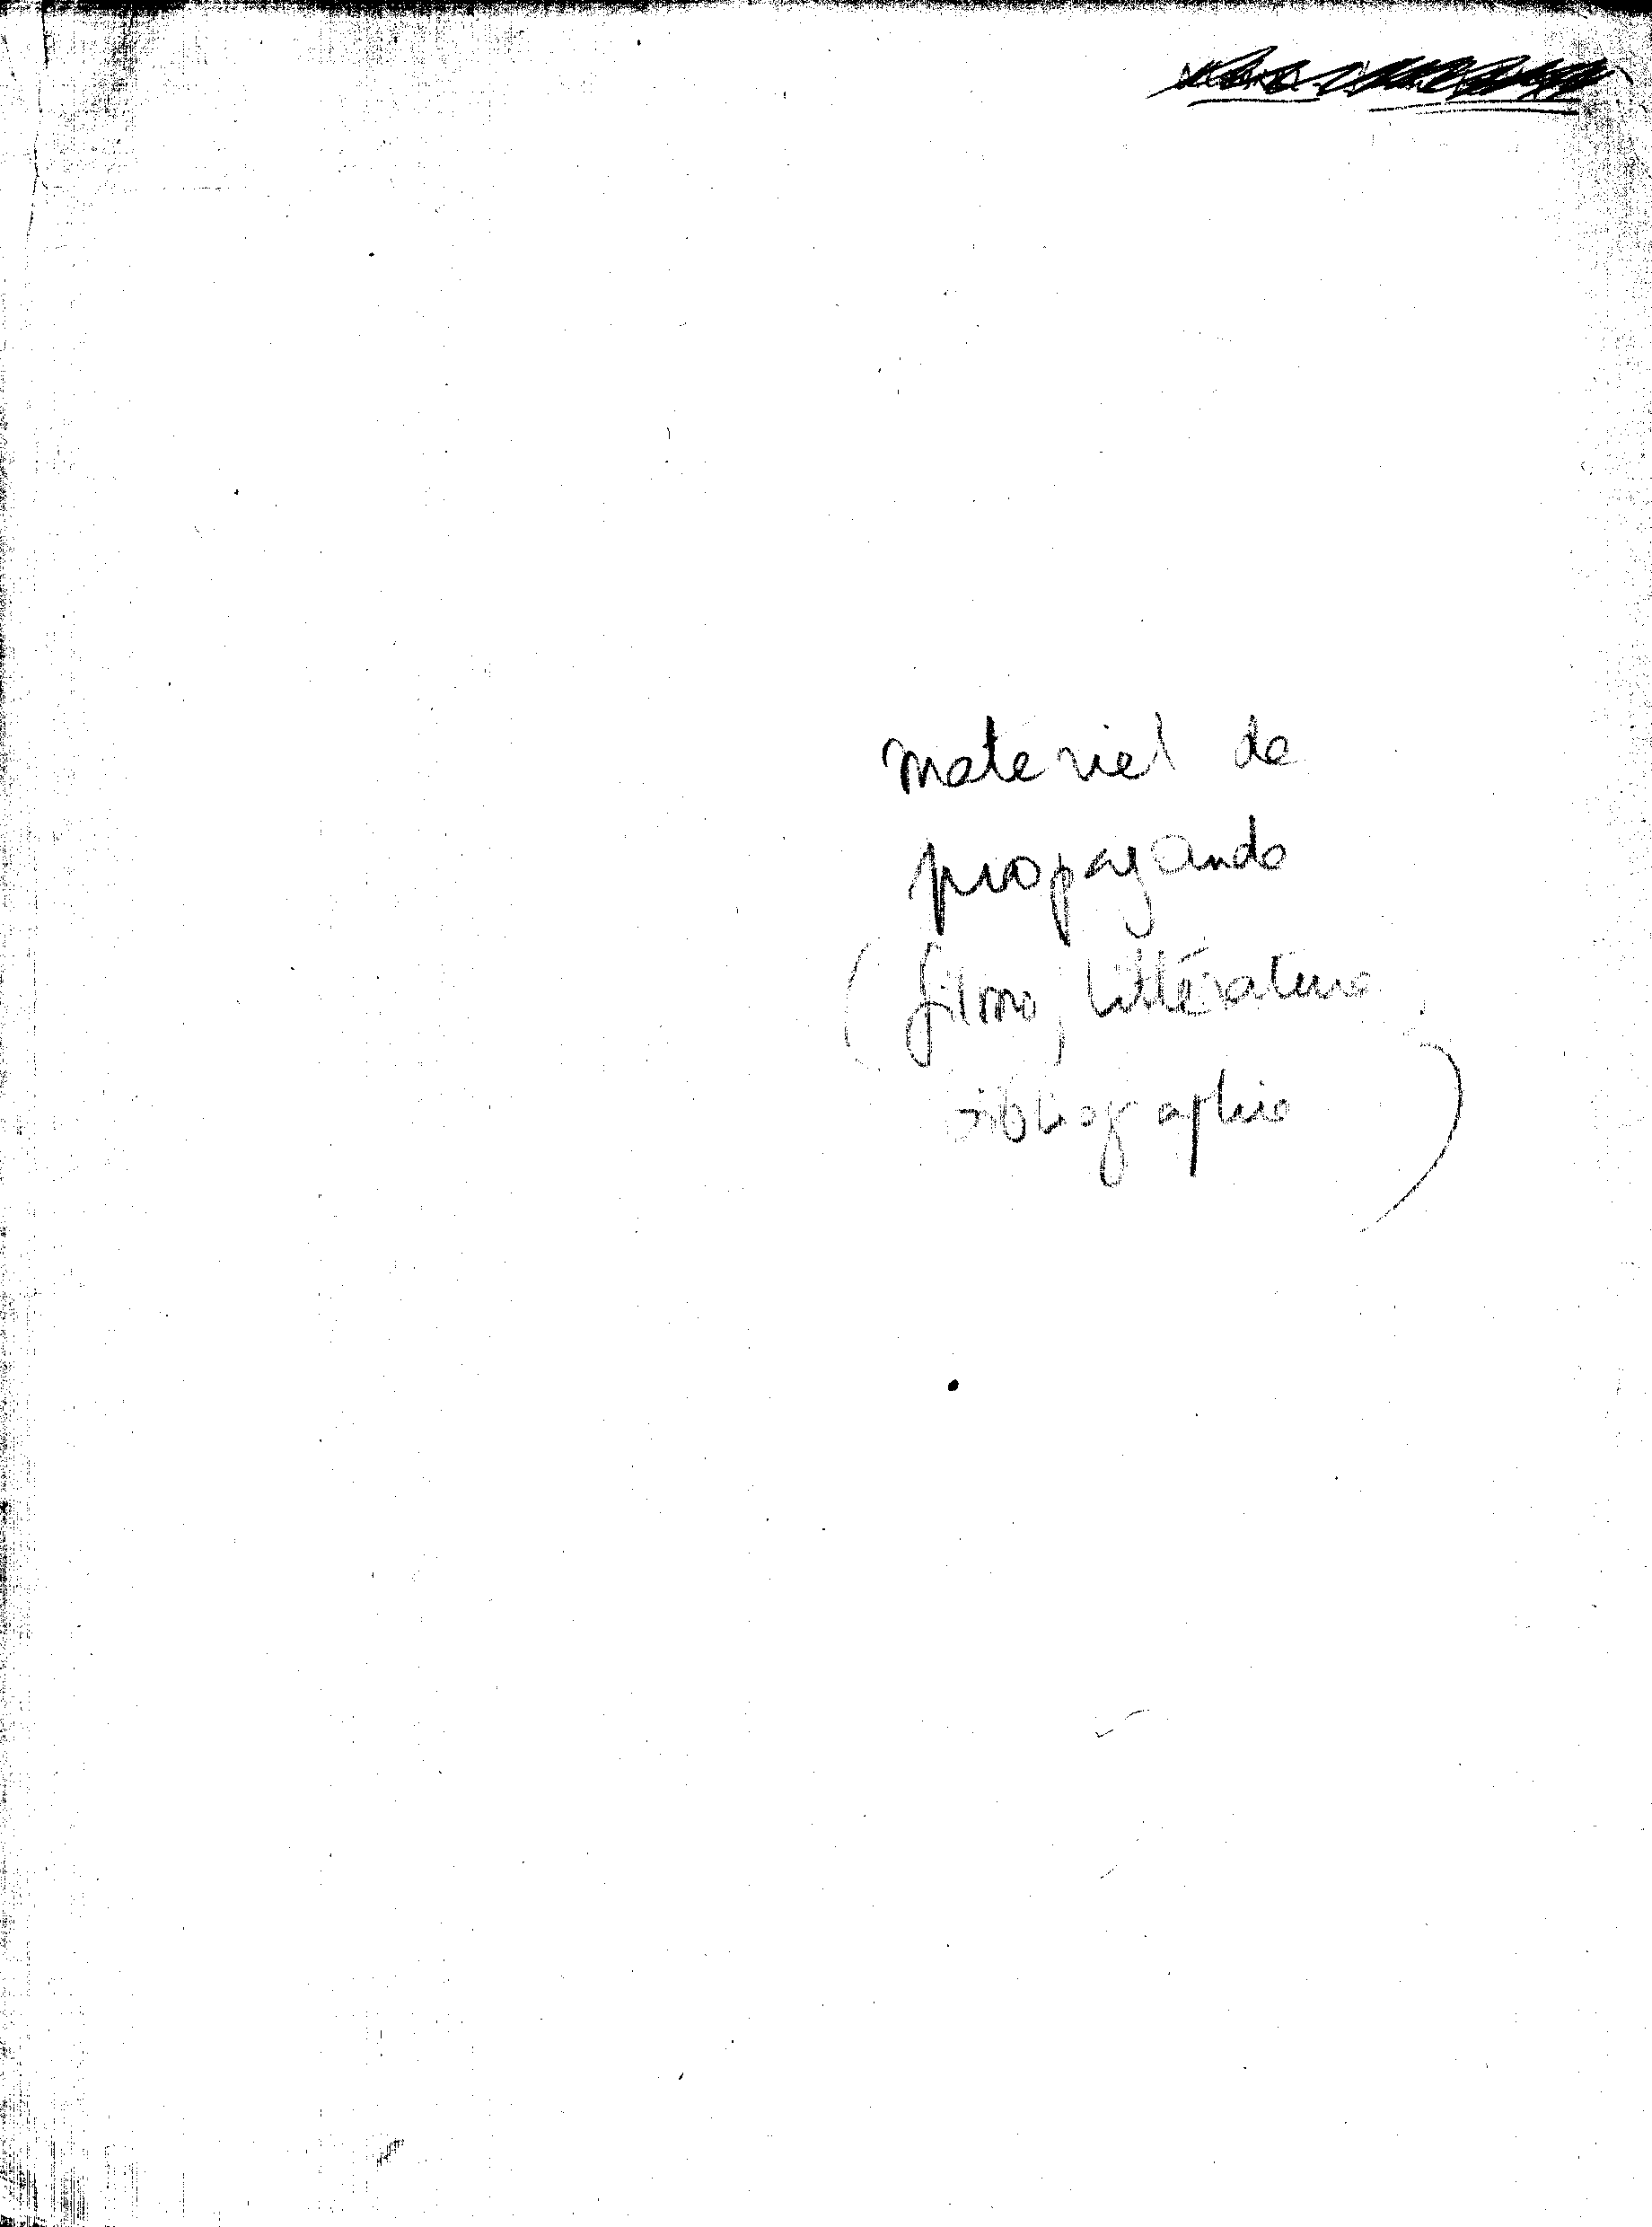 matériel de
propagande
(films, littérature,
bibliographie)